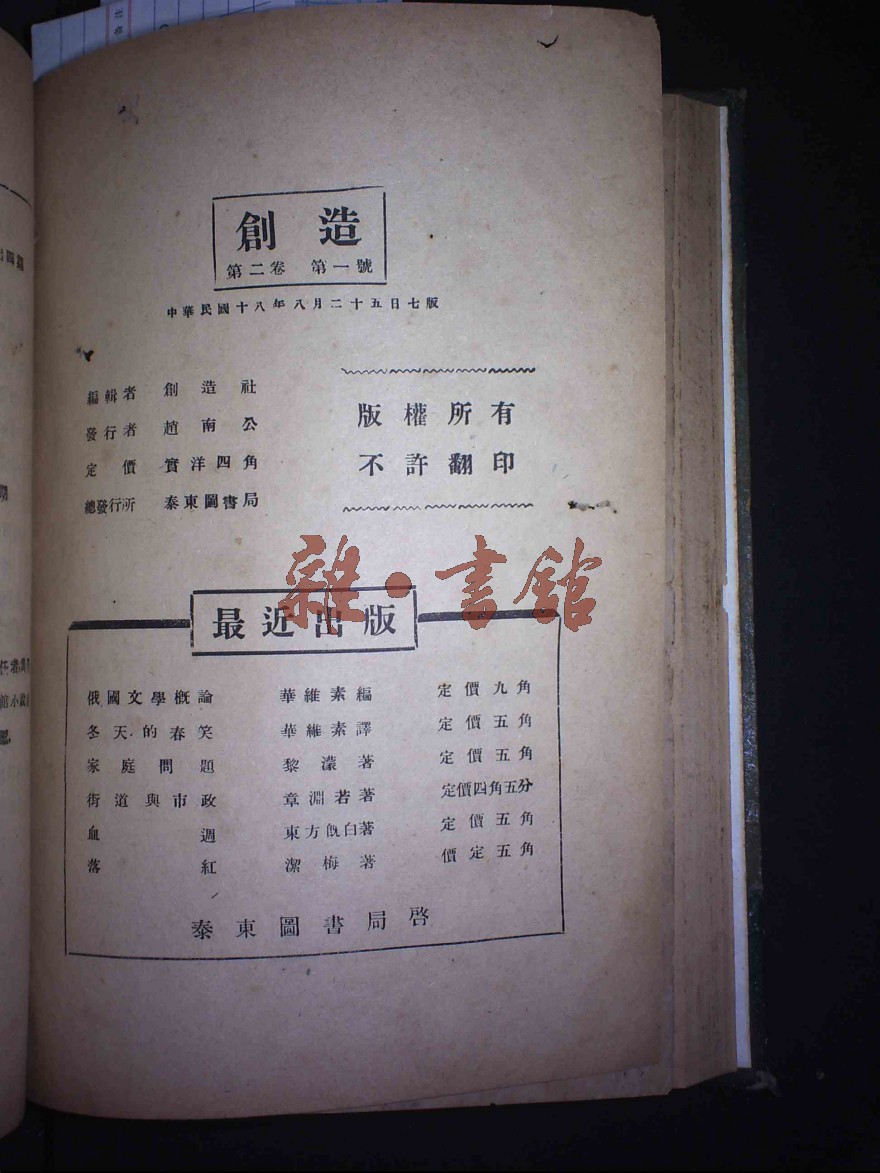 創造
第二卷 第一號
中華民國十八年八月二十五日七版
編輯者 創造社
發行者 趙南公
定價 實洋四角
總發行所 泰東圖書局
版權所有
不許翻印
雜·書館
最近出版
俄國文學概論 華維素編 定價九角
冬天的春笑 華維素譯 定價五角
家庭問題 黎濛著 定價五角
街道與市政 章淵若著 定價四角五分
血週 東方旣白著 定價五角
落紅 潔梅著 價定五角
泰東圖書局啓